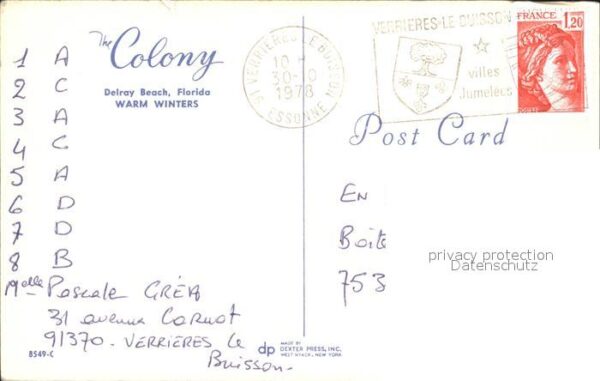 The Colony
Delray Beach, Florida
WARM WINTERS
1 A
2 C
3 A
4 C
5 A
6 D
7 D
8 B
Melle Pascale
31 avenue Carnot
91370. VERRIERES le
Buisson.
8549-C
dp MADE BY
DEXTER PRESS, INC.
WEST NYACK, NEW YORK
91 VERRIERES LE BUISSON
10 H
30-10
1978
ESSONNE
VERRIERES-LE-BUISSON
villes
Jumelées
FRANCE
1,20
Post Card
EN
Boite
753
privacy protection
Datenschutz